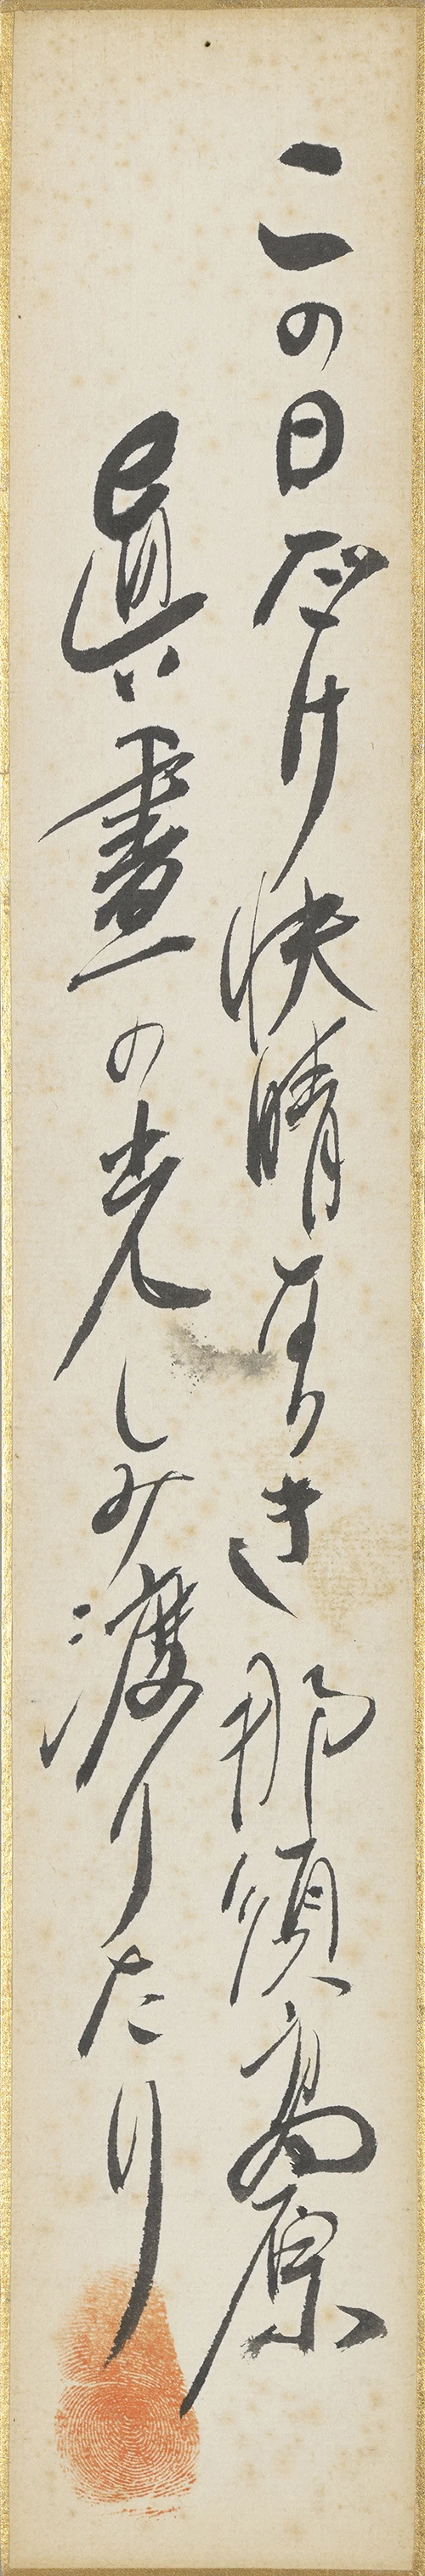 この日だけ快晴なりき那須高原
眞晝の光しみ渡りたり